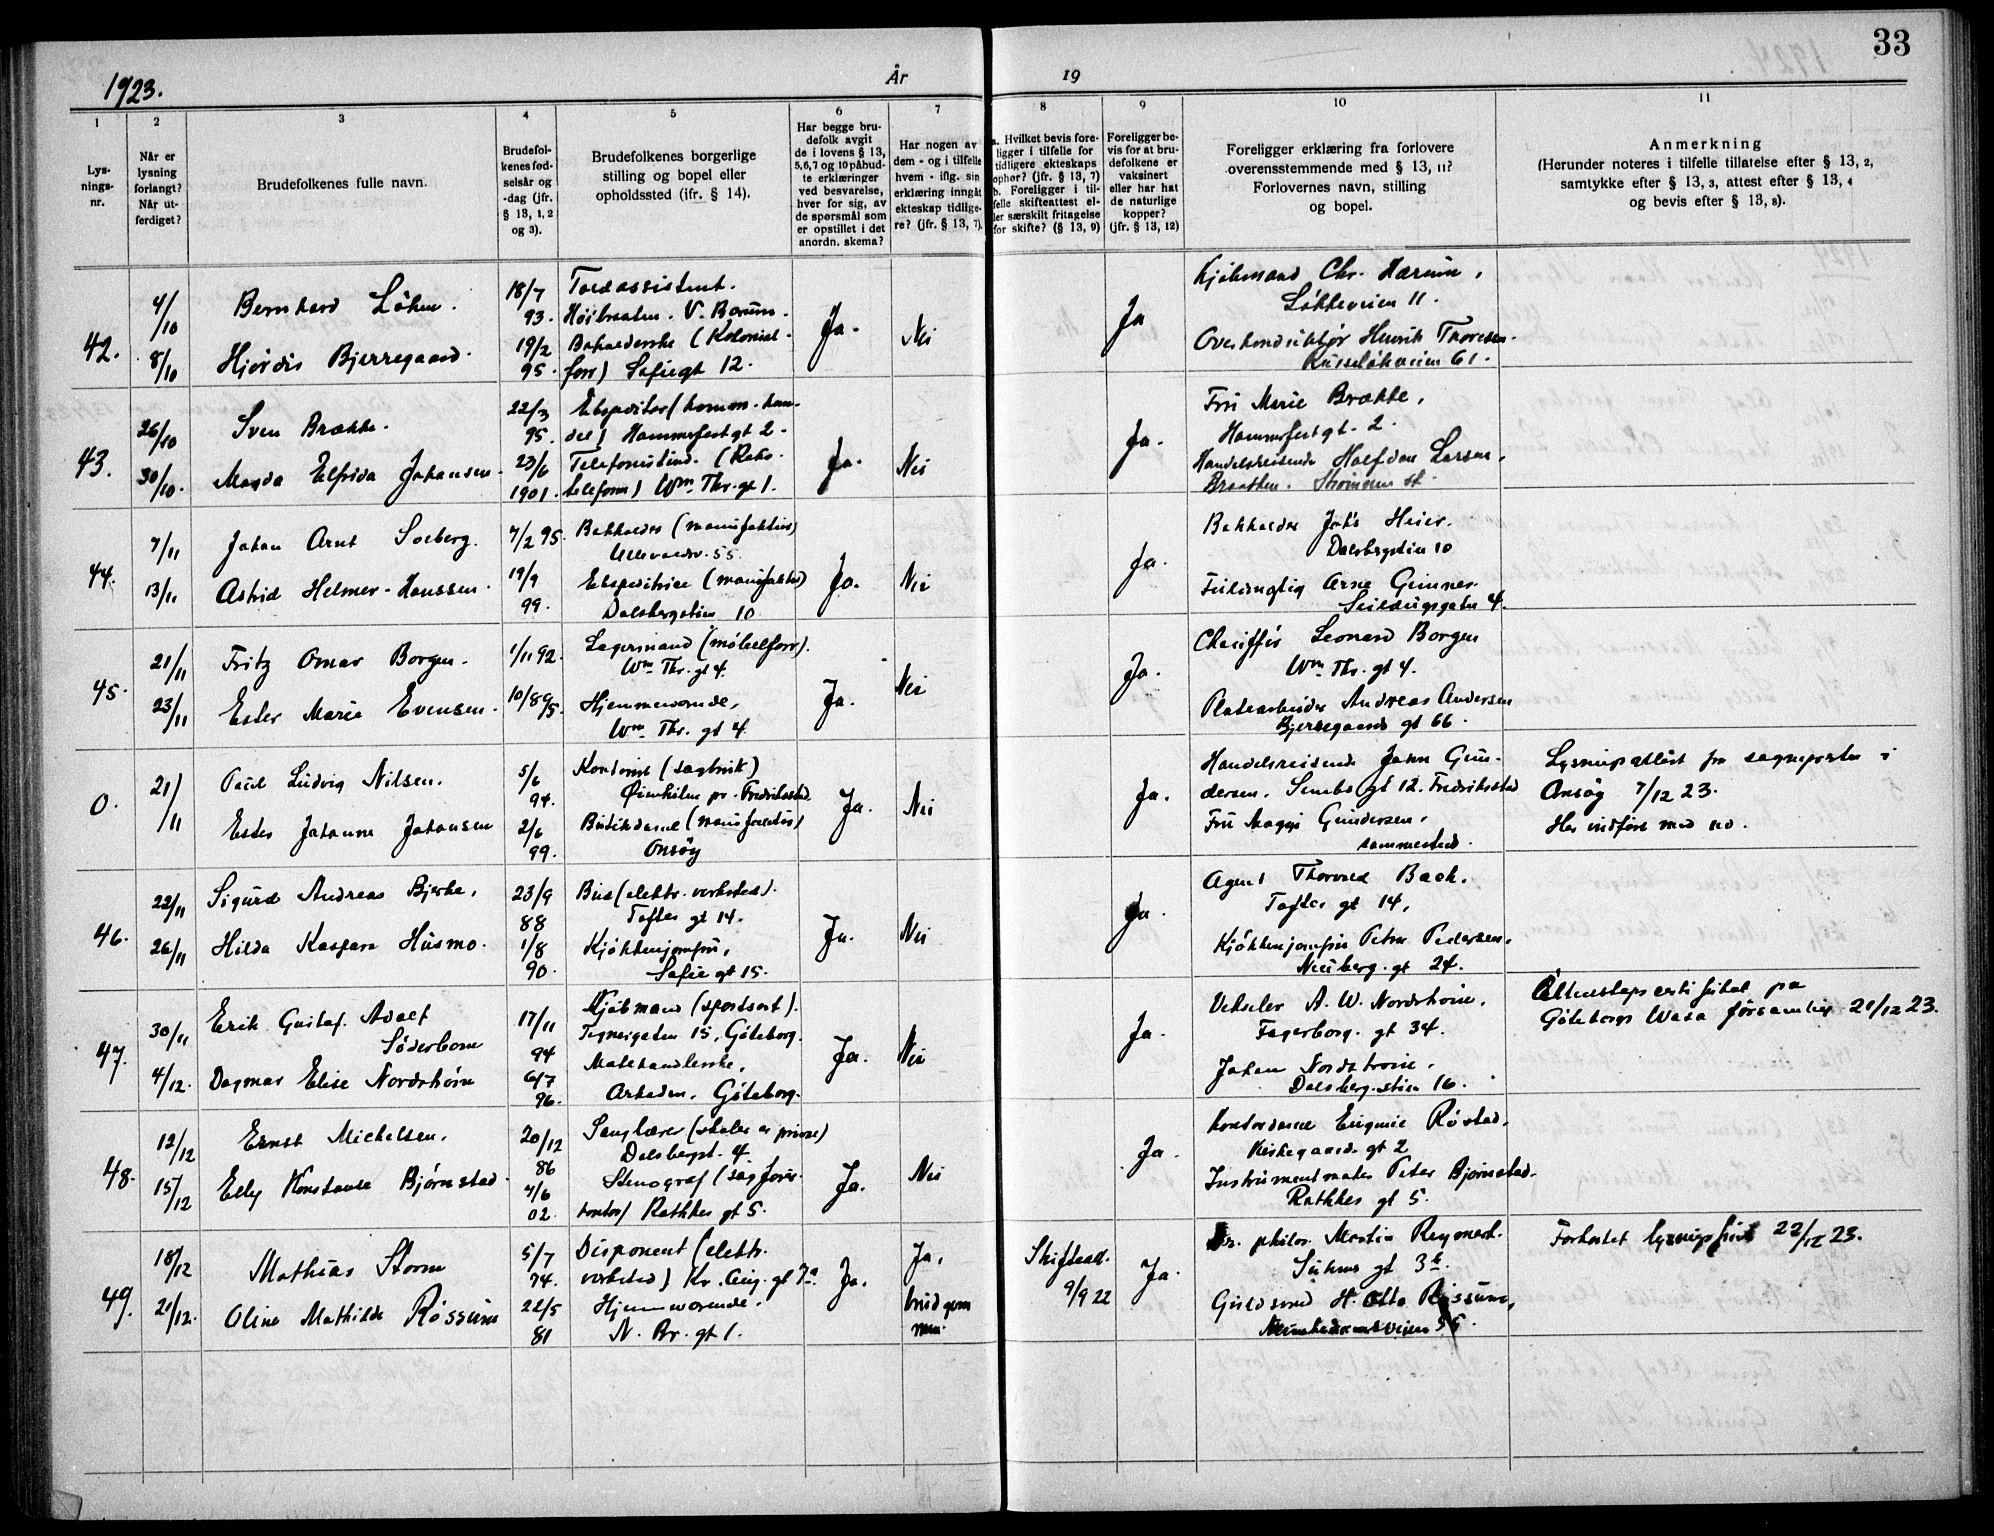 33
1923.
År
19
1
2
3
4
5
6
7
8
9
10
11
Lys-
nings-
nr.
Når er
lysning
forlangt?
Når ut-
ferdiget?
Brudefolkenes fulle navn.
Brudefol-
kenes fød-
selsår og
-dag (jfr.
§ 13, 1, 2
og 3).
Brudefolkenes borgerlige
stilling og bopel eller
opholdssted (ifr. § 14).
Har begge bru-
defolk avgit
de i lovens § 13,
5,6,7 og 10 påbud-
te erklæringer
ved besvarelse,
hver for sig, av
de spørsmål som
er opstillet i det
anordn. skema?
Har nogen av
dem - og i tilfelle
hvem - iflg. sin
erklæring inngåt
ekteskap tidlige-
re? (jfr. § 13, 7).
a. Hvilket bevis fore-
ligger i tilfelle for
tidligere ekteskaps
ophør? (jfr. § 13, 7)
b. Foreligger i til-
felle skifteattest el-
ler særskilt fritagelse
for skifte? (§ 13, 9)
Foreligger be-
vis for at bru-
defolkene er
vaksinert
eller har hat
de naturlige
kopper?
(jfr. § 13, 12)
Foreligger erklæring fra forlovere
overensstemmende med § 13, 11?
Forlovernes navn, stilling
og bopel.
Anmerkning
(Herunder noteres i tilfelle tillatelse efter § 13, 2,
samtykke efter § 13, 3, attest efter § 13, 4
og bevis efter § 13, 8).
42.
4/10
8/10
Bernhard Løken.
Hjørdis Bjerregaard.
18/7
93.
19/2
95.
Toldassistent.
Høibraaten. V. Bærum.
(Kolonial-
forr) Sofiegt 12.
Ja.
Nei
Ja
Kjøbmand Chr. Hærum,
Løkkeveien 11.
Overkonduktør Henrik Thoresen.
Russeløkveien 61.
43.
26/10
30/10.
Sven Brække.
Magda Elfrida Johansen.
22/3
95.
23/6
1901.
Ekspeditør (komm. han-
del) Hammerfestgt 2.
Telefonistinde. (Riks-
telefonen) Wm Thr. gt 1.
Ja.
Nei
Ja.
Fru Marie Brække,
Hammerfestgt. 2.
Handelsreisende Halfdan Larsen,
Braathen. Strømmen st.
44.
7/11
13/11
Johan Arnt Solberg.
Astrid Helmer-Hanssen.
7/2 95.
19/9
99.
Bokholder (manufaktur)
Ullevoldsv. 55.
Ekspeditrice (manufaktur)
Dalsbergstien 10
Ja.
Nei
Ja.
Bokholder Johs Heier.
Dalsbergstien 10
Arne Gimnes.
Seilduksgaten 4.
45.
21/11
23/11
Fritz Omar Borgen.
Ester Marie Evensen.
1/11 92.
10/8 95.
Lagermand (møbelforr).
Wm Thr. gt 4.
Hjemmeværende,
Wm Thr. gt 4
Ja.
Nei
Ja.
Chauffør Leonard Borgen
Wm Thr. gt 4.
Platearbeider Andreas Andersen
Bjerregaards gt 66.
0.
21/11
Paul Ludvig Nilsen.
Ester Johanne Johansen
5/6
94.
2/6
99.
Kontorist (sagbruk)
Øienkilen pr. Fredrikstad
Butikdame (manufaktur)
Onsøy
Ja.
Nei
Ja.
Handelsreisende John Gun-
dersen. gt 12. Fredrikstad
Fru Magni Gundersen,
sammesteds.
Lysningsattest fra sognepresten i
Onsøy 7/12 23.
Her indført med no.
46.
22/11
26/11
Sigurd Andreas Bjerke,
Hilda Kaspara Husmo.
23/9
88
1/8
90.
Bud (elektr. verksted).
Toftes gt 14.
Kjøkkenjomfru,
Sofie gt 15.
Ja.
Nei
Ja.
Agent Thorvald Bach.
Toftes gt 14,
Kjøkkenjomfru Petra Pedersen.
Neuberg. gt 24.
47.
30/11
4/12.
Erik Gustaf Adolf
Söderbom
Dagmar Elise Nordstrøm
17/11
94
6/7
96.
Kjøbmand (sportsart).
Tegnergatan 15, Göteborg.
Mathandlerske,
Arkaden, Göteborg.
Ja.
Nei
Ja.
Veksler A. W. Nordstrøm.
Fagerborg. gt 34.
Johan Nordstrøm,
Dalsberg. stien 16.
Äktenskapscertifikat på
Göteborgs Wasa församling 21/12 23.
48.
12/12
15/12
Ernst Michelsen.
Elly Konstanse Bjørnstad.
20/12
86
4/6
02.
Sanglærer (skoler og privat)
Dalsbergst. 4
Stenograf (sagfører-
kontor) Rathkes gt 5.
Ja.
Nei
Ja.
Kontordame Eugenie Røstad.
Kirkegaards gt 2
Instrumentmaker Peter Bjørnstad.
Rathkes gt 5.
49.
18/12
21/12.
Mathias Storm
Oline Mathilde Røssum
5/7
74.
22/5
81
Disponent (elektr.
verksted) Kr. Aug. gt 7a
Hjemmeværende.
N. Br. gt 1.
Ja.
Ja,
brudgom
men.
Skifteatt.
9/9 22
Ja.
Dr. philos. Martin Reymert.
Suhms gt 3b.
Guldsmed H. Otto Røssum,
Munkedamsveien
Forkortet lysningsfrist 22/12 23.